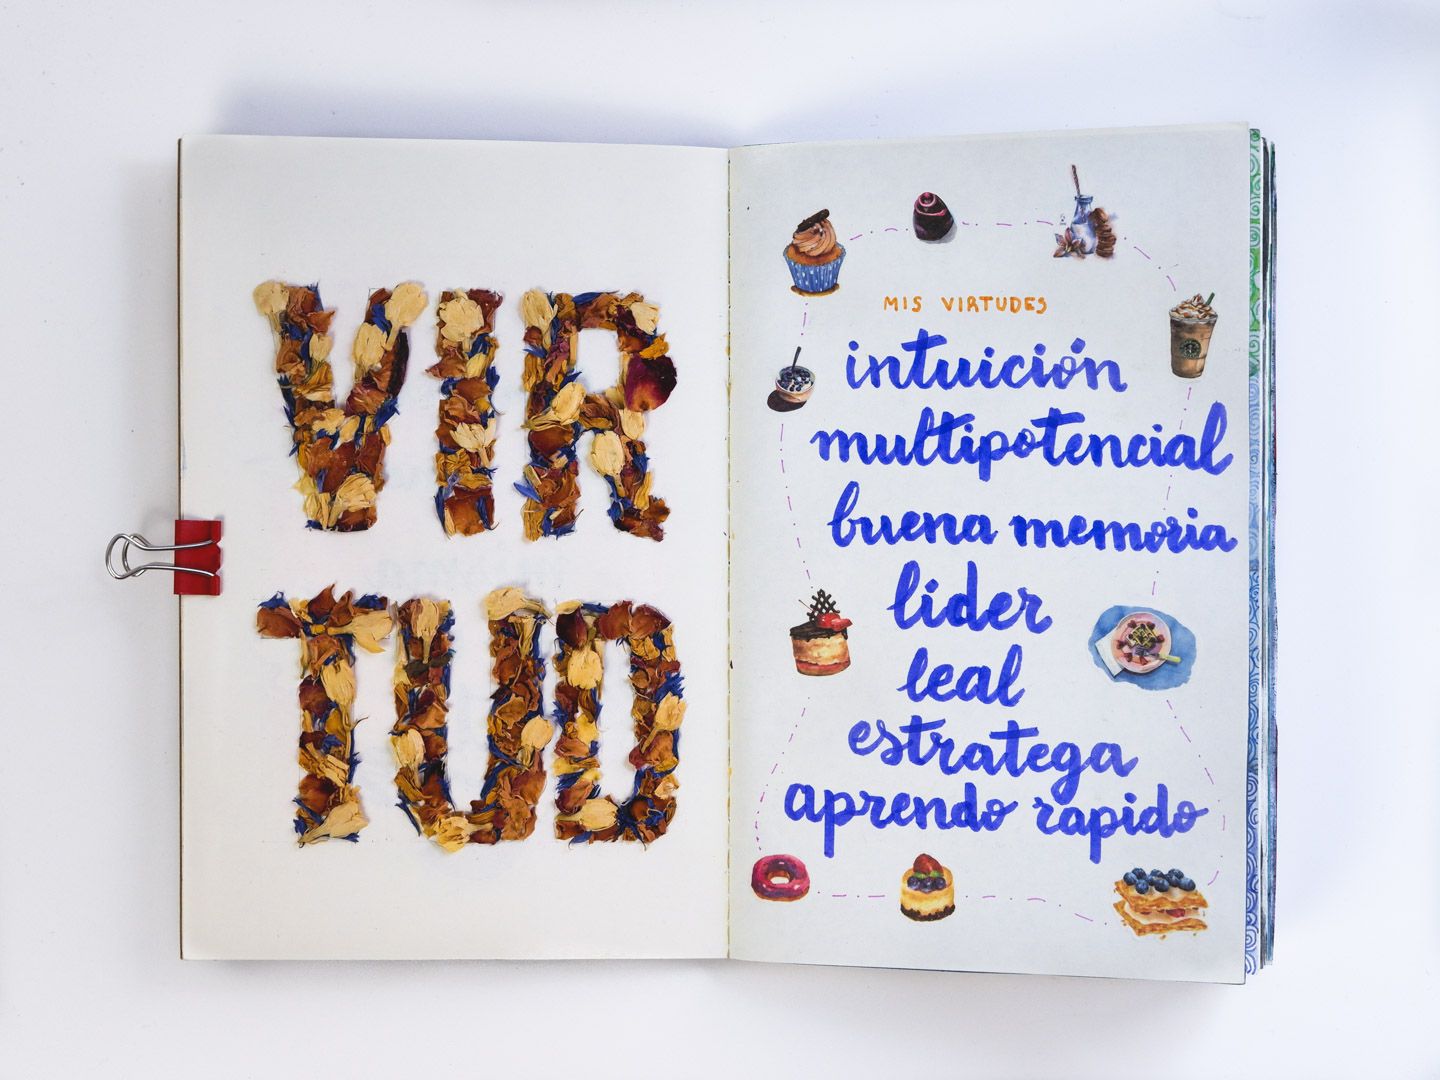 VIR
TUD
MIS VIRTUDES
intuición
multipotencial
buena memoria
lider
leal
estratega
aprendo rapido